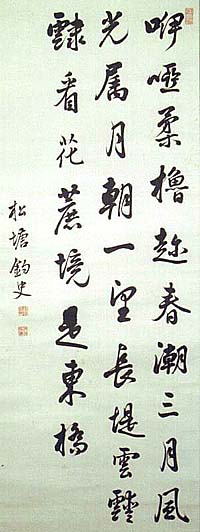 咿啞柔櫓趁春潮三月風
光属月朝一望長堤雲靉
靆看花蔗境是東橋
松塘釣史